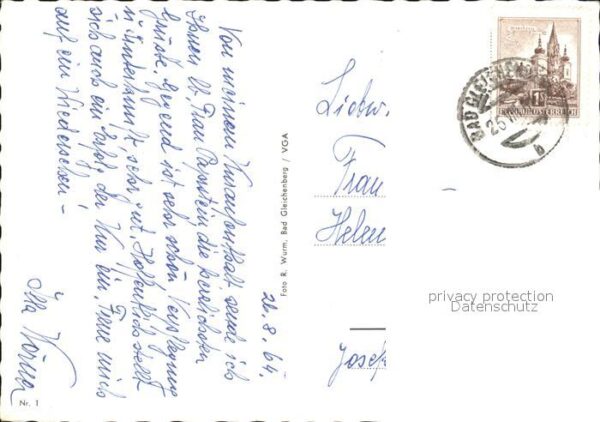 Von meinem Kuraufenthalt sende ich
Ihnen lb. Frau Papstein die herzlichsten
Grüße. Gegend ist sehr schön, Verpflegung
u. Unterkunft sehr gut. Hoffentlich stellt
sich auch ein Erfolg der Kur ein. Freue mich
auf ein Wiedersehen –
26.8.64.
Foto R. Wurm, Bad Gleichenberg / VGA
Nr. 1
REPUBLIK ÖSTERREICH
BAD GLEICHENBERG
Liebw.
Frau
Helen
Josef
privacy protection
Datenschutz